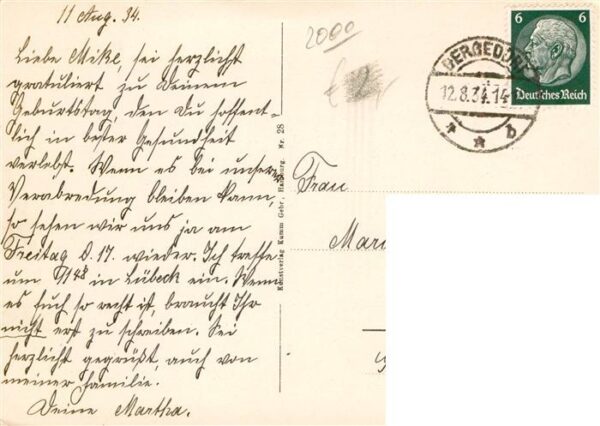 11 Aug. 34.
Liebe Mike, sei herzlichst
gratuliert zu Deinem
Geburtstag, den Du hoffent-
lich in bester Gesundheit
verlebst. Wenn es bei unserer
Verabredung bleiben kann,
so sehen wir uns ja am
Freitag d. 17. wieder. Ich treffe
um 9/48 in Lübeck ein. Wenn
es Euch so recht ist, braucht Ihr
nicht erst zu schreiben. Sei
herzlichst gegrüßt, auch von
meiner Familie.
Deine Martha.
Kunstverlag Kumm Gebr., Hamburg. Nr. 28
2000
BERGEDORF
12.8.34.14
* * b
6 6
Deutsches Reich
Frau
Mar